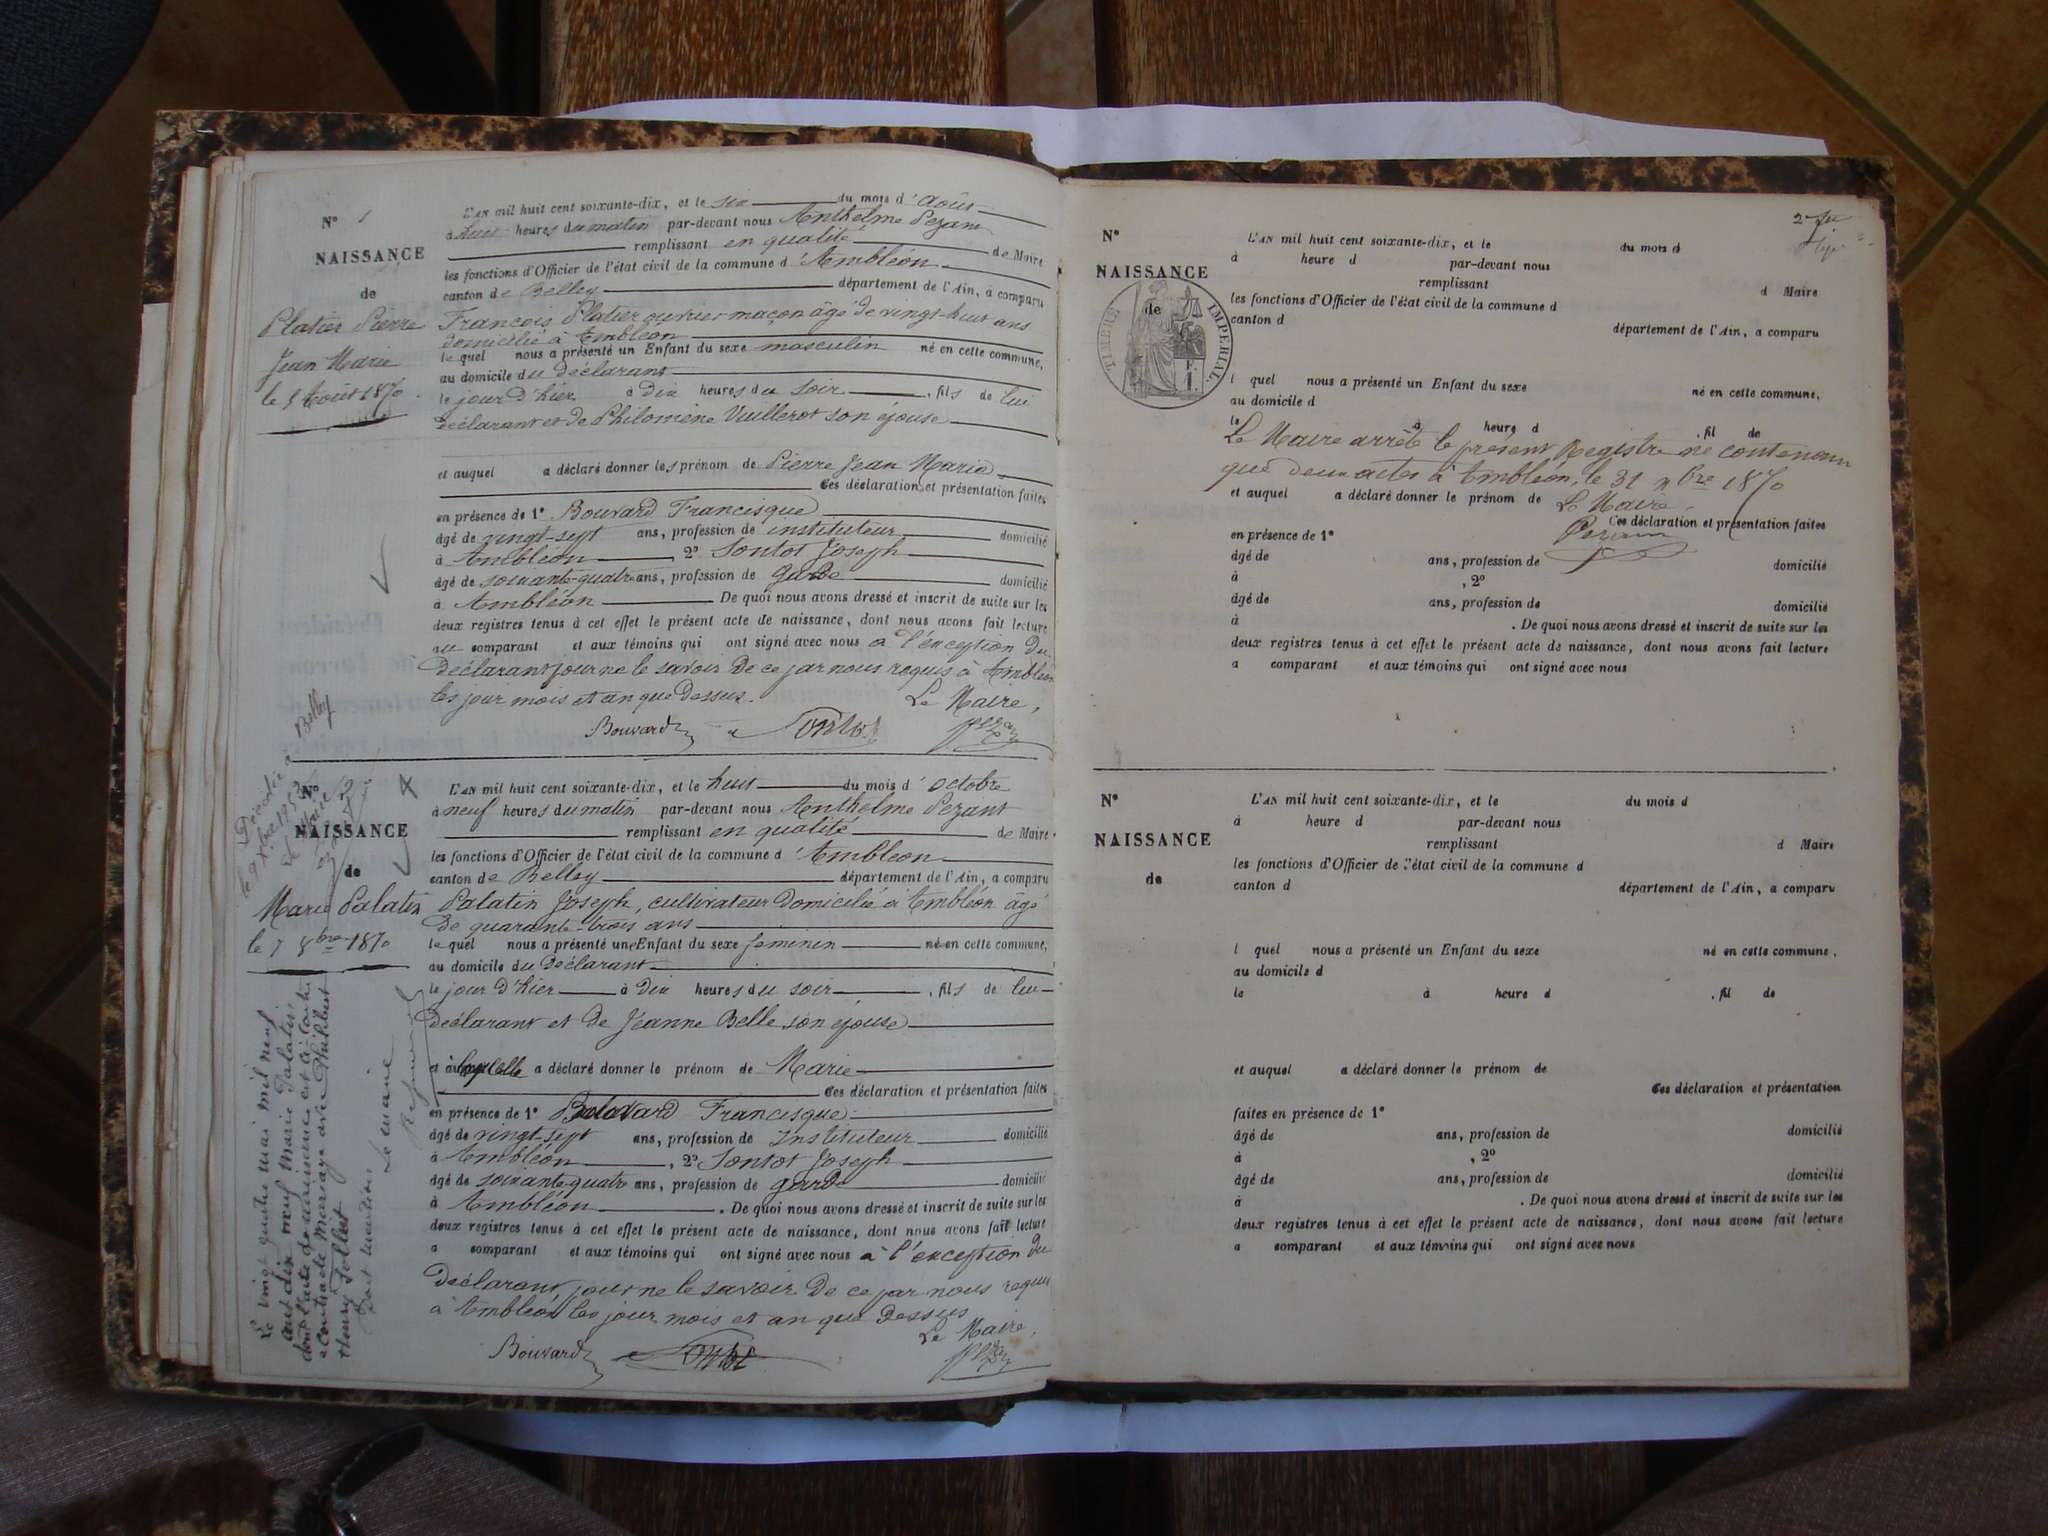 N° 1
NAISSANCE
de
Platier Pierre
Jean Marie
le 5 Août 1870
L'AN mil huit cent soixante-dix, et le six du mois d'Août
à huit heures du matin par-devant nous Anthelme Pezant
remplissant en qualité de Maire
les fonctions d'Officier de l'état civil de la commune d'Ambléon
canton de Belley département de l'Ain, a comparu
François Platier ouvrier maçon âgé de vingt-huit ans
domicilié à Ambléon
le quel nous a présenté un Enfant du sexe masculin né en cette commune,
au domicile du déclarant
le jour d'hier à dix heures du soir, fils de lui
déclarant et de Philomène Vuillerot son épouse
et auquel a déclaré donner les prénom de Pierre Jean Marie
Ces déclaration et présentation faites
en présence de 1° Bouvard Francisque
âgé de vingt-sept ans, profession de instituteur domicilié
à Ambléon 2° Sontot Joseph
âgé de soixante-quatre ans, profession de garde domicilié
à Ambléon De quoi nous avons dressé et inscrit de suite sur les
deux registres tenus à cet effet le présent acte de naissance, dont nous avons fait lecture
au comparant et aux témoins qui ont signé avec nous à l'exception du
déclarant pour ne le savoir de ce par nous requis à Ambléon
les jour mois et an que dessus. Le Maire,
Bouvard Sontot Pezant
Décédée à Belley
N° 2
NAISSANCE
de
Marie Palatin
le 7 8bre 1870
L'AN mil huit cent soixante-dix, et le huit du mois d'octobre
à neuf heures du matin par-devant nous Anthelme Pezant
remplissant en qualité de Maire
les fonctions d'Officier de l'état civil de la commune d'Ambléon
canton de Belley département de l'Ain, a comparu
Palatin Joseph, cultivateur domicilié à Ambléon âgé
de quarante-trois ans
le quel nous a présenté une Enfant du sexe féminin né en cette commune,
au domicile du déclarant
le jour d'hier à dix heures du soir, fils de lui
déclarant et de Jeanne Belle son épouse
a déclaré donner le prénom de Marie
Ces déclaration et présentation faites
en présence de 1° Bouvard Francisque
âgé de vingt-sept ans, profession de Instituteur domicilié
à Ambléon, 2° Sontot Joseph
âgé de soixante-quatre ans, profession de garde domicilié
à Ambléon. De quoi nous avons dressé et inscrit de suite sur les
deux registres tenus à cet effet le présent acte de naissance, dont nous avons fait lecture
a comparant et aux témoins qui ont signé avec nous à l'exception du
déclarant, pour ne le savoir de ce par nous requis
à Ambléon les jour mois et an que dessus
Le Maire,
Bouvard Sontot Pezant
Le vingt quatre mai mil neuf
cent dix neuf Marie Palatin
dont l'acte de naissance est ci-contre
a contracté Mariage avec Philibert
Henry Jolbert
Dont mention
Le maire
N°
NAISSANCE
de
TIMBRE IMPERIAL
L'AN mil huit cent soixante-dix, et le du mois d
à heure d par-devant nous
remplissant
d Maire
les fonctions d'Officier de l'état civil de la commune d
canton d département de l'Ain, a comparu
l quel nous a présenté un Enfant du sexe né en cette commune,
au domicile d
le à heure d, fil de
Le Maire arrête le présent Registre ne contenant
que deux actes à Ambléon, le 31 Xbre 1870
et auquel a déclaré donner le prénom de
Le Maire,
Ces déclaration et présentation faites
Pezant
en présence de 1°
âgé de ans, profession de domicilié
à , 2°
âgé de ans, profession de domicilié
à . De quoi nous avons dressé et inscrit de suite sur les
deux registres tenus à cet effet le présent acte de naissance, dont nous avons fait lecture
a comparant et aux témoins qui ont signé avec nous
N°
NAISSANCE
de
L'AN mil huit cent soixante-dix, et le du mois d
à heure d par-devant nous
remplissant d Maire
les fonctions d'Officier de l'état civil de la commune d
canton d département de l'Ain, a comparu
l quel nous a présenté un Enfant du sexe né en cette commune,
au domicile d
le à heure d , fil de
et auquel a déclaré donner le prénom de
Ces déclaration et présentation
faites en présence de 1°
âgé de ans, profession de domicilié
à , 2°
âgé de ans, profession de domicilié
à . De quoi nous avons dressé et inscrit de suite sur les
deux registres tenus à cet effet le présent acte de naissance, dont nous avons fait lecture
a comparant et aux témoins qui ont signé avec nous